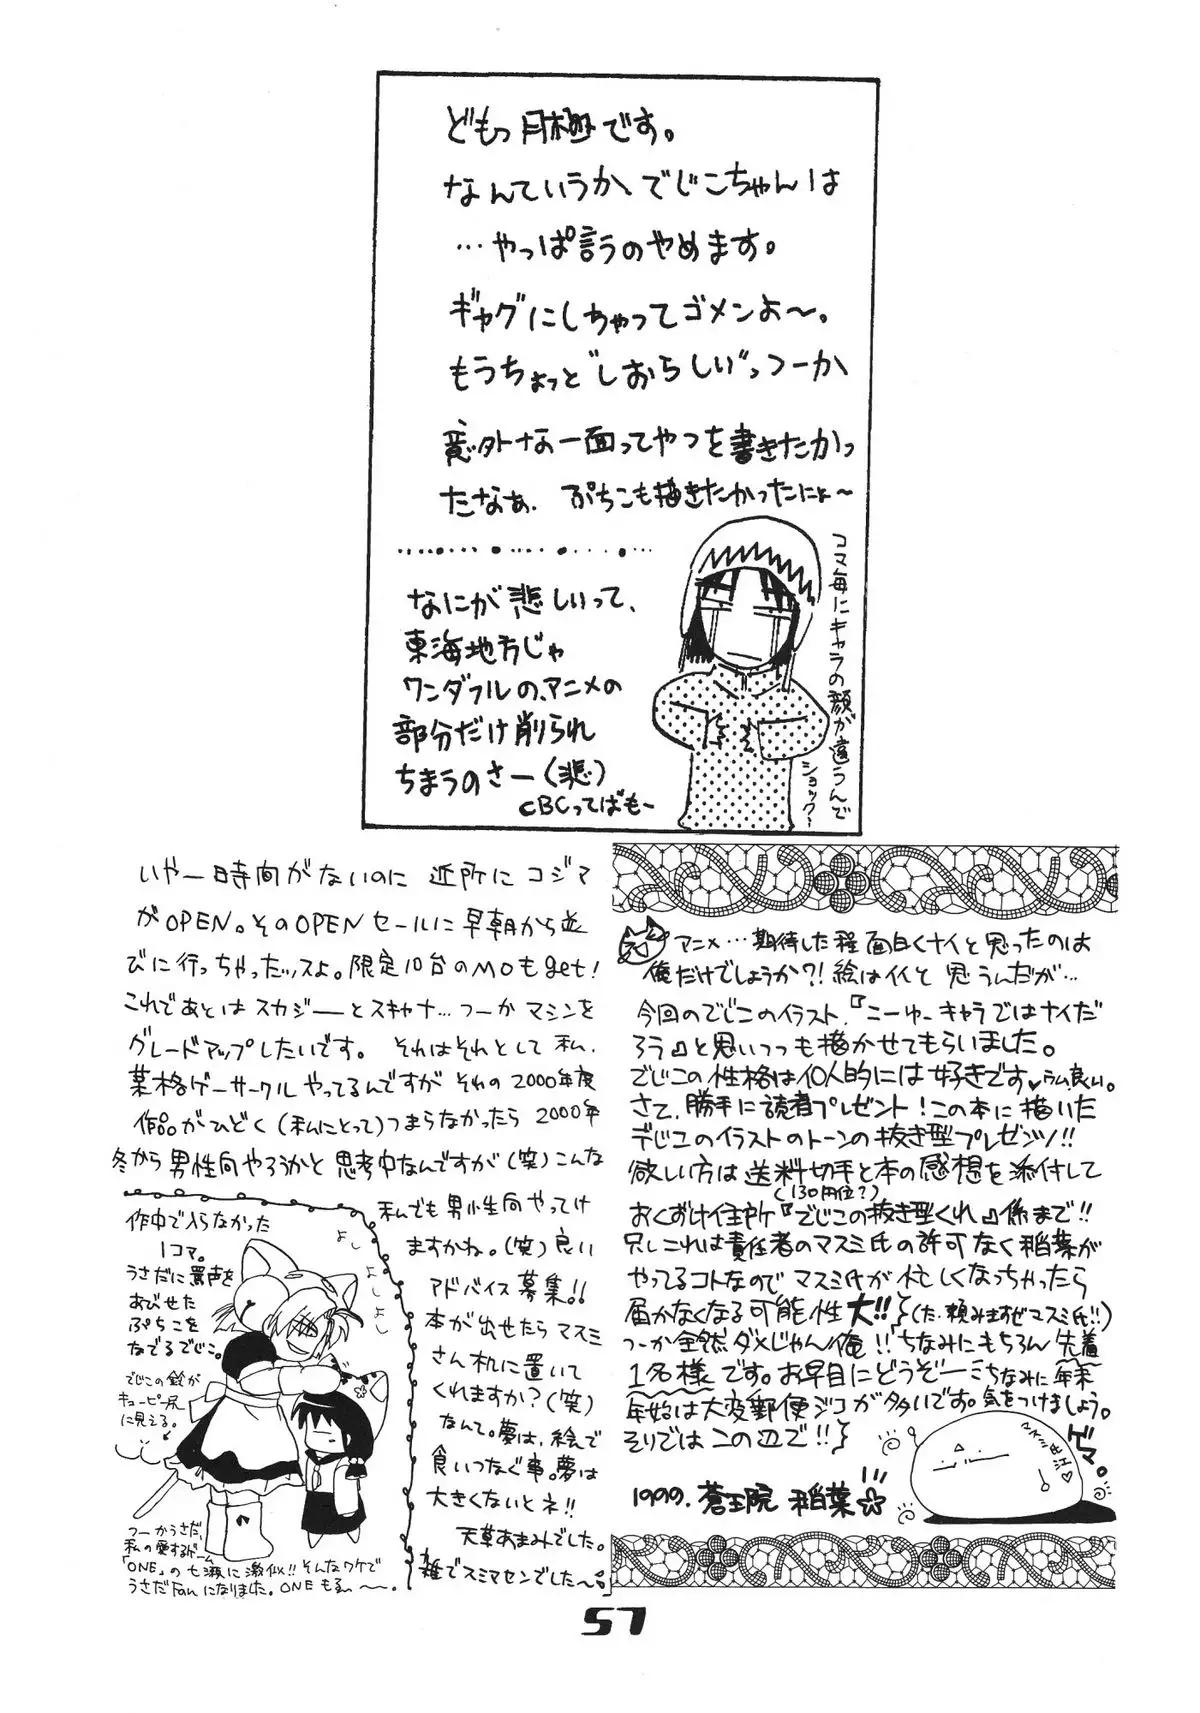 どもっ月極です。
なんていうか、でじこちゃんは
…やっぱ言うのやめます。
ギャグにしちゃってゴメンよ〜。
もうちょっと"しおらしい"っつーか
意外な一面ってやつを書きたかっ
たなぁ、ぷちこも描きたかったにょ〜
なにが悲しいって、
東海地方じゃ
ワンダフルの、アニメの
部分だけ削られ
ちまうのさー(悲)
CBCってばも〜
コマ毎にキャラの顔が違うんで
ショック〜
いやー時間がないのに 近所に コジマ
がOPEN。そのOPENセールに早朝から並
びに行っちゃったッスよ。限定10台のMOもget!
これであとは スカジーとスキャナ…つーか マシンを
グレードアップしたいです。 それはそれとして 私、
葉格ゲーサークル やってるんですが その 2000年度
作品がひどく(私にとって)つまらなかったら 2000年
冬から 男性向やろうかと 思考中なんですが(笑)こんな
私でも男性向やってけ
ますかね。(笑)良い
アドバイス募集!!
本が出せたら マスミ
さん机に置いて
くれますか?(笑)
なんて。夢は、絵で
食いつなぐ事。夢は
大きくないとネ!!
天草あまみでした。
雑でスミマセンでした〜
作中で入らなかった
1コマ。
うさだに罵声を
あびせた
ぷちこを
なでるでじこ。
よしよしよし
でじこの鈴が
キューピー尻
に見える。
つーかうさだ、
私の愛するゲーム
「ONE」の七瀬に激似!! そんなワケで
うさだFanになりました。ONE もえ〜〜。
アニメ…期待した程 面白くナイと思ったのは
俺だけでしょうか?!絵はイイと 思うんだが…
今回のでじこのイラスト、『こーゆーキャラではナイだ
ろう』と思いつつも描かせてもらいました。
でじこの性格は個人的には好きです♥ラム良い。
さて、勝手に読者プレゼント!この本に描いた
デじこのイラストのトーンの抜き型プレゼンツ!!
欲しい方は送料切手と本の感想を添付して
(130円位?)
おくづけ住所『でじこの抜き型くれ』係まで!!
只しこれは責任者のマスミ氏の許可なく稲葉が
やってるコトなので マスミ氏が忙しくなっちゃったら
届かなくなる可能性大!!(た、頼みますぜマスミ氏!!)
つーか全然ダメじゃん俺!!ちなみにもちろん先着
1名様です。お早目にどうぞーミちなみに年末
年始は大変郵便ジコが多いです。気をつけましょう。
そりでは この辺で!!
1999. 蒼王院 稲葉☆
ゲマ。
57